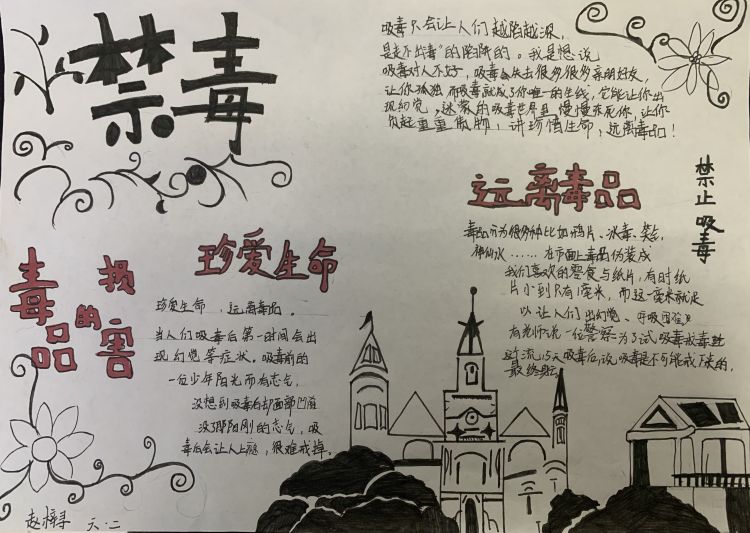 禁毒
吸毒只会让人们越陷越深,
是走不出毒"的陷阱的。我是想说
吸毒对人不好,吸毒会失去很多很多亲朋好友,
让你孤独 而吸毒就成了你唯一的生线,它能让你出
现幻觉,迷幻的吸毒世界里 慢慢杀死你,让你
负起重重 ,讲珍惜生命,远离毒品!
禁止吸毒
远离毒品
毒品分为很多种比如鸦片、冰毒、
神仙水……在市面上毒品伪装成
我们喜欢的零食与纸片,有时纸
片小到只有1厘米,而这一厘米就足
以让人们出幻觉、呼吸困难
有老师说一位警察为了试吸毒戒毒
天吸毒后,说吸毒是不可能戒下来的,
珍爱生命
珍爱生命,远离毒品。
当人们吸毒后第一时间会出
现幻觉等症状。吸毒前的
一位少年阳光而有志气,
没想到吸毒后却面部凹陷
没了那阳刚的志气,吸
毒后会让人上瘾,很难戒掉。
毒品的损害
六.二